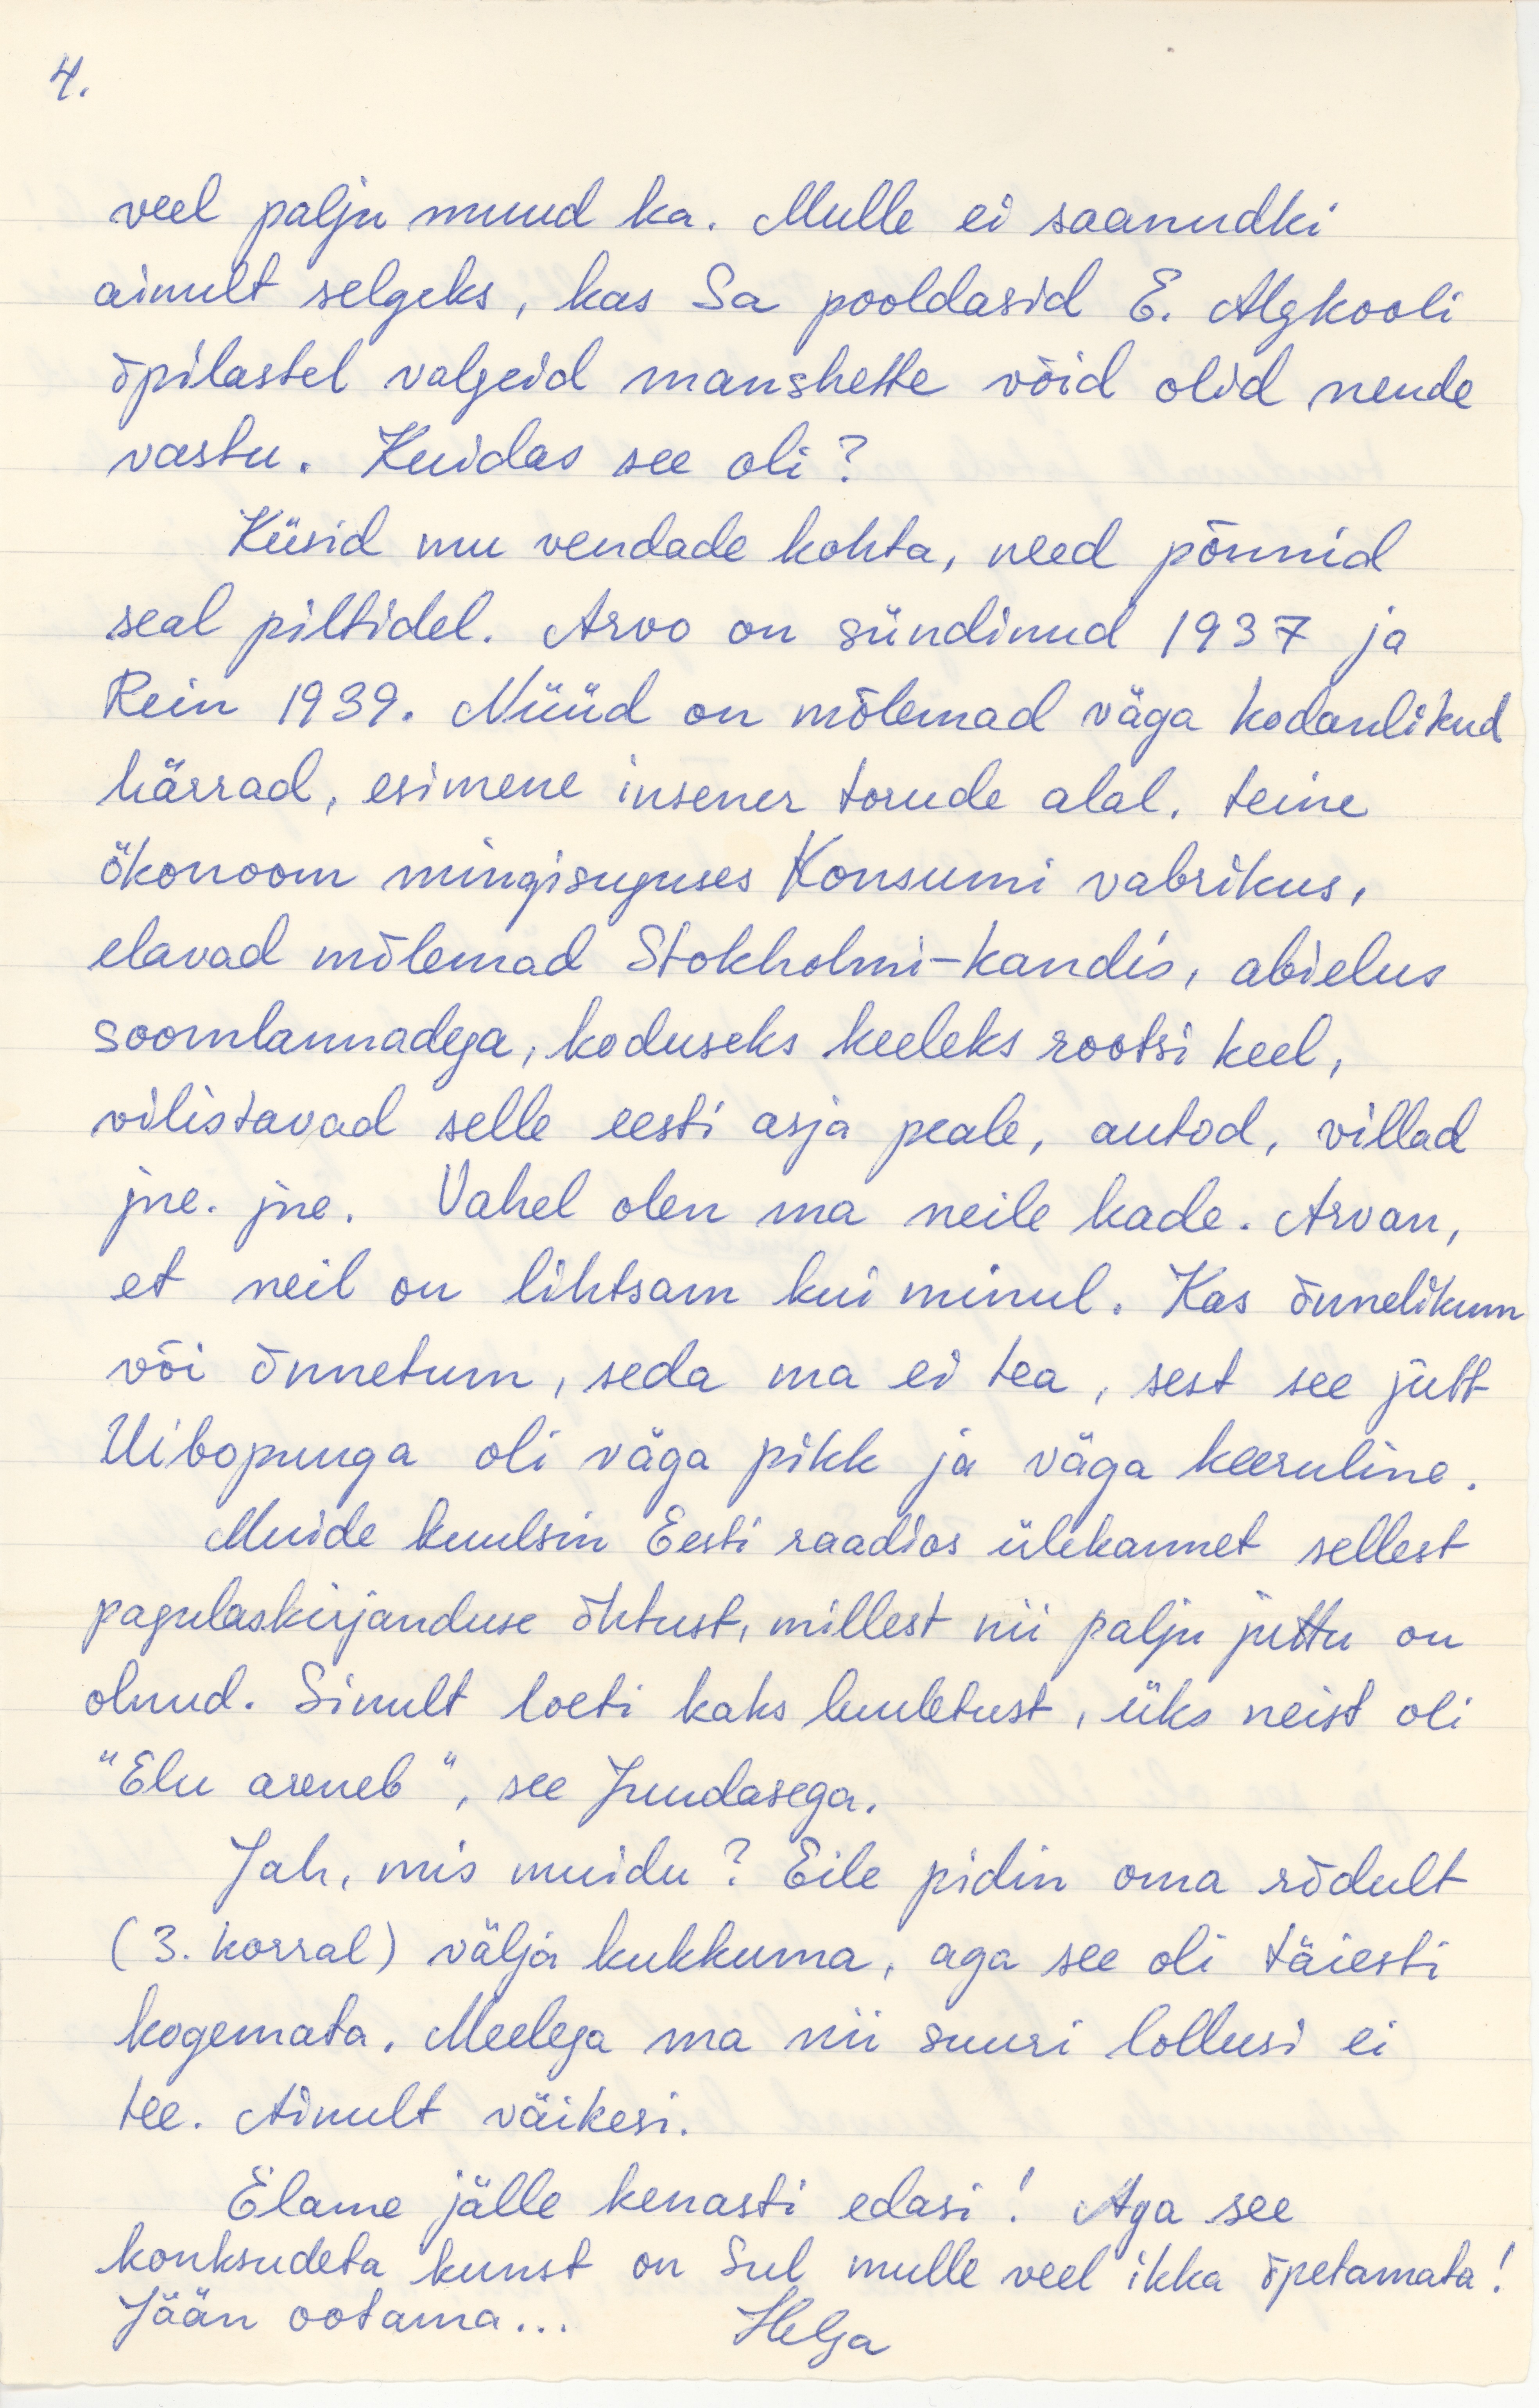 4.
veel palju muud ka. Mulle ei saanudki
ainult selgeks, kas Sa pooldasid E. Algkooli
õpilastel valgeid manshette võid olid nende
vastu. Kuidas see oli?
Küsid mu vendade kohta, need põnnid
seal piltidel. Arvo on sündinud 1937 ja
Rein 1939. Nüüd on mõlemad väga kodanlikud
härrad, esimene insener torude alal, teine
ökonoom mingisuguses Konsumi vabrikus,
elavad mõlemad Stokholmi-kandis, abielus
soomlannadega, koduseks keeleks rootsi keel,
vilistavad selle eesti asja peale, autod, villad
jne. jne. Vahel olen ma neile kade. Arvan,
et neil on lihtsam kui minul. Kas õnnelikum
või õnnetum, seda ma ei tea, sest see jutt
Uibopuuga oli väga pikk ja väga keeruline.
Muide kuulsin Eesti raadios ülekannet sellest
pagulaskirjanduse õhtust, millest nii palju juttu on
olnud. Sinult loeti kaks luuletust, üks neist oli
"Elu areneb", see Juudasega.
Jah, mis muidu? Eile pidin oma rõdult
(3. korral) välja kukkuma, aga see oli täiesti
kogemata. Meelega ma nii suuri lollusi ei
tee. Ainult väikesi.
Elame jälle kenasti edasi! Aga see
konksudeta kunst on Sul mulle veel ikka õpetamata!
Jään ootama... Helga